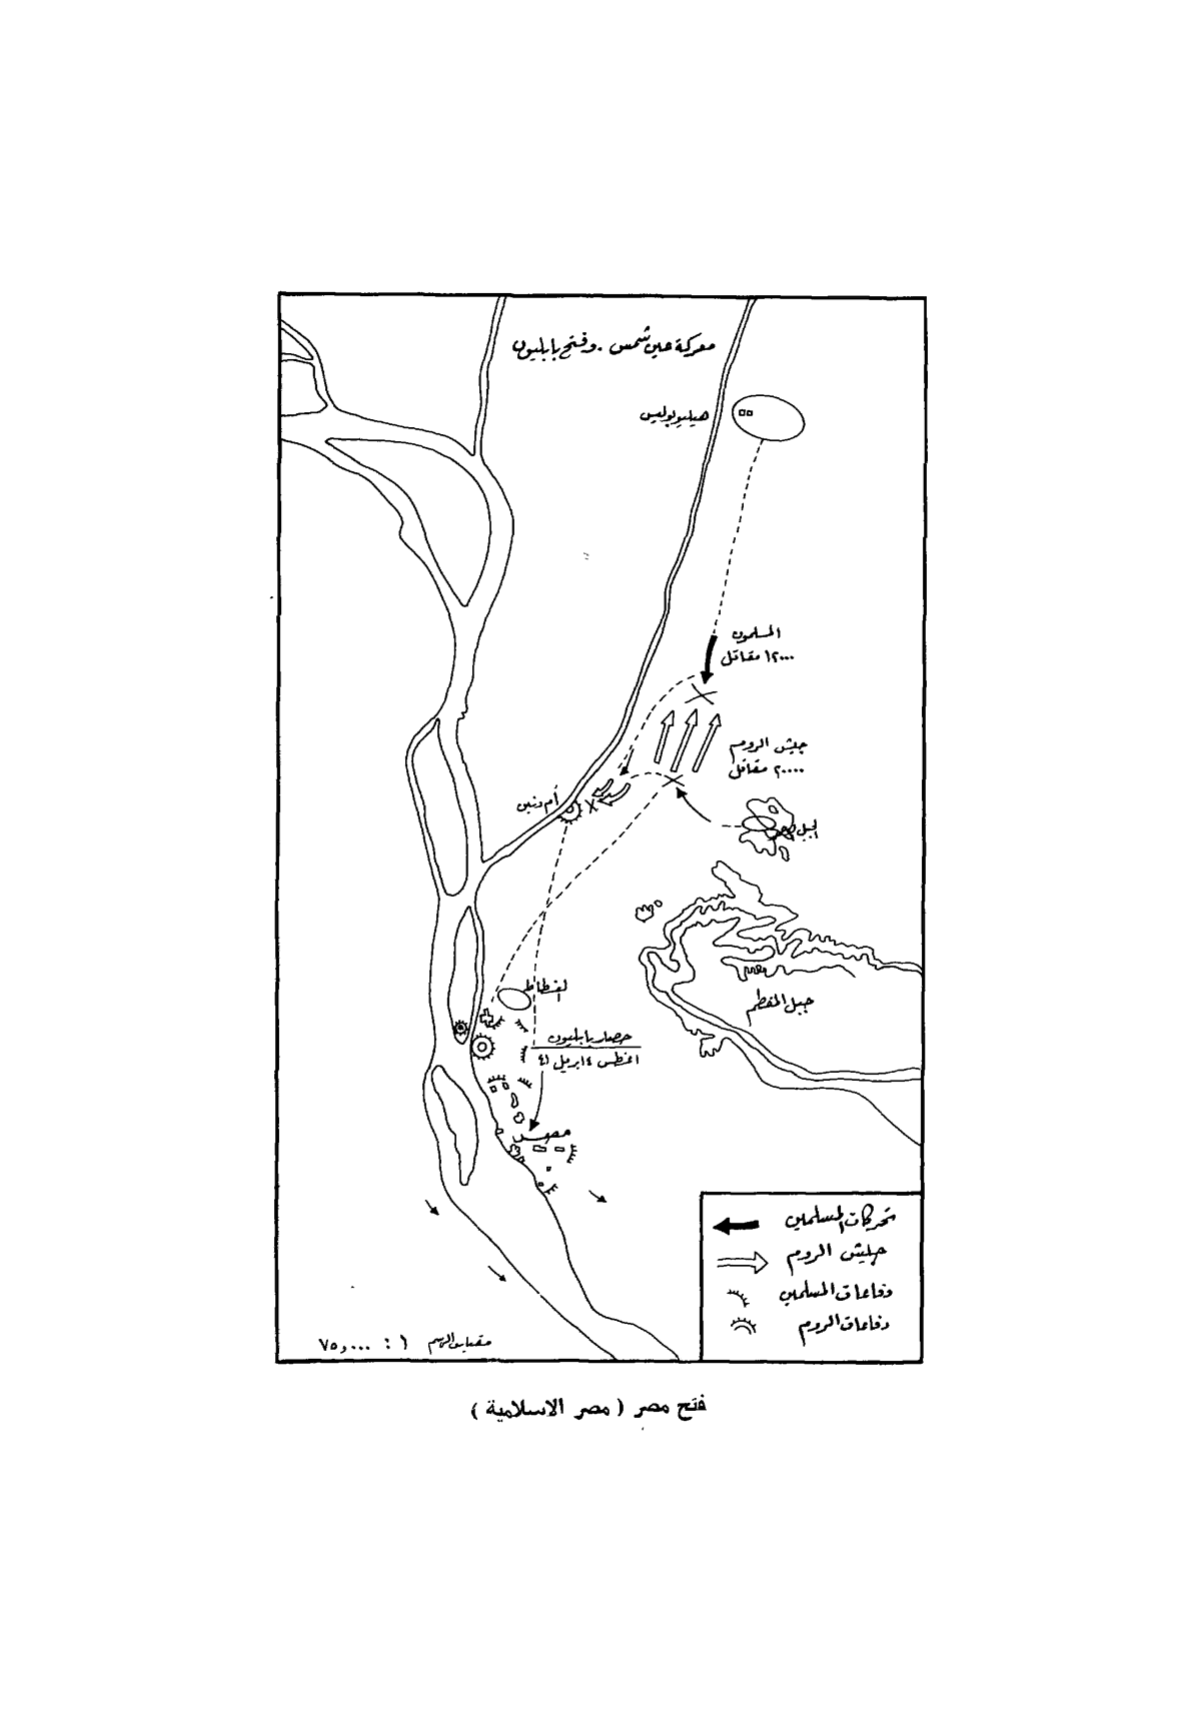 معركة عين شمس . وفتح بابليون
هيليوبوليس
المسلمون
١٢٠٠٠ مقاتل
جيش الروم
٢٠٠٠٠ مقاتل
أم دنين
الجبل
جبل المقطم
الفسطاط
حصار بابليون
ابريل ٤١
مصر
تحركات المسلمين
جيش الروم
دفاعات المسلمين
دفاعات الروم
مقياس الرسم ١ : ٧٥٫٠٠٠
فتح مصر ( مصر الاسلامية )